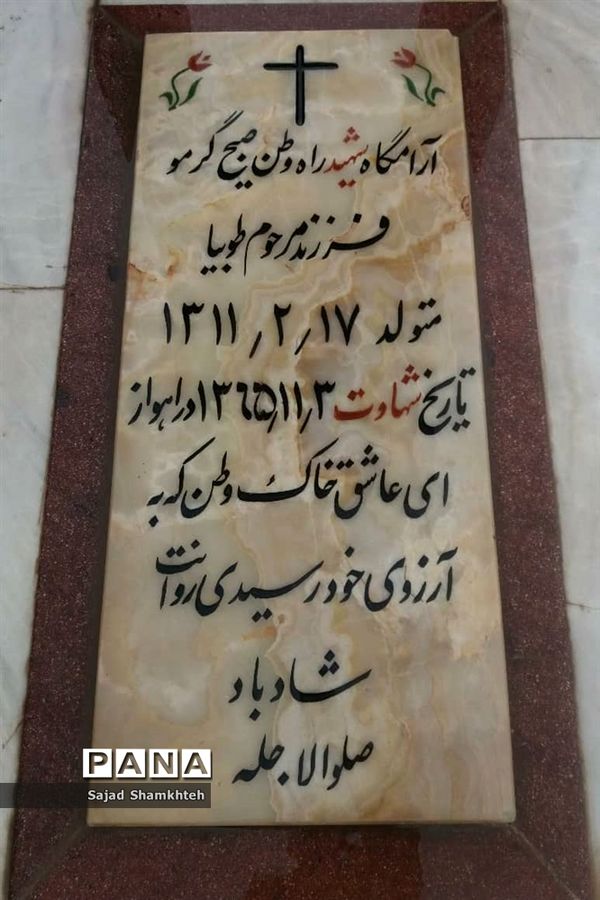 آرامگاه شهید راه وطن صبح گرمو
فرزند مرحوم طوبیا
متولد ۱۷٫ ۲٫ ۱۳۱۱
تاریخ شهادت ۳٫ ۱۱٫ ۱۳۶۵ در اهواز
ای عاشق خاک وطن که به
آرزوی خود رسیدی روانت
شاد باد
صلوالاجله
PANA
Sajad Shamkhteh